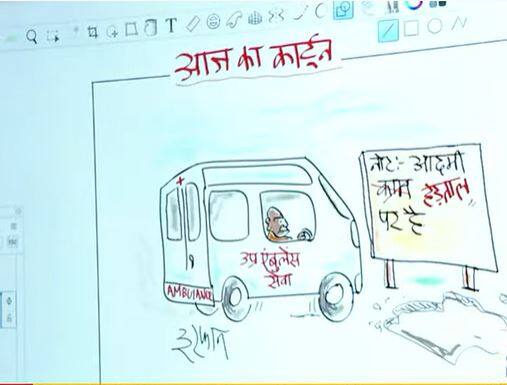 आज का कार्टून
नोट:- आदमी
काम हड़ताल
पर है
उप्र एंबुलेंस
सेवा
AMBULANCE
इरफान